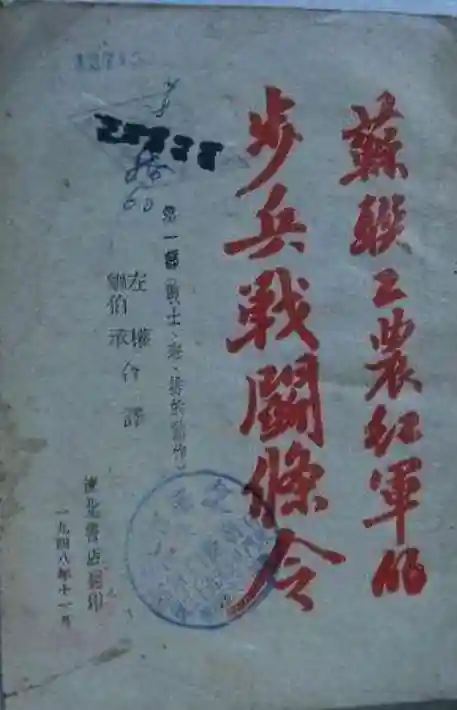 蘇联工農紅軍的
步兵戰鬪條令
第一部(戰士、班、排的動作)
左權
劉伯承 合譯
東北書店翻印
一九四八年十一月
60